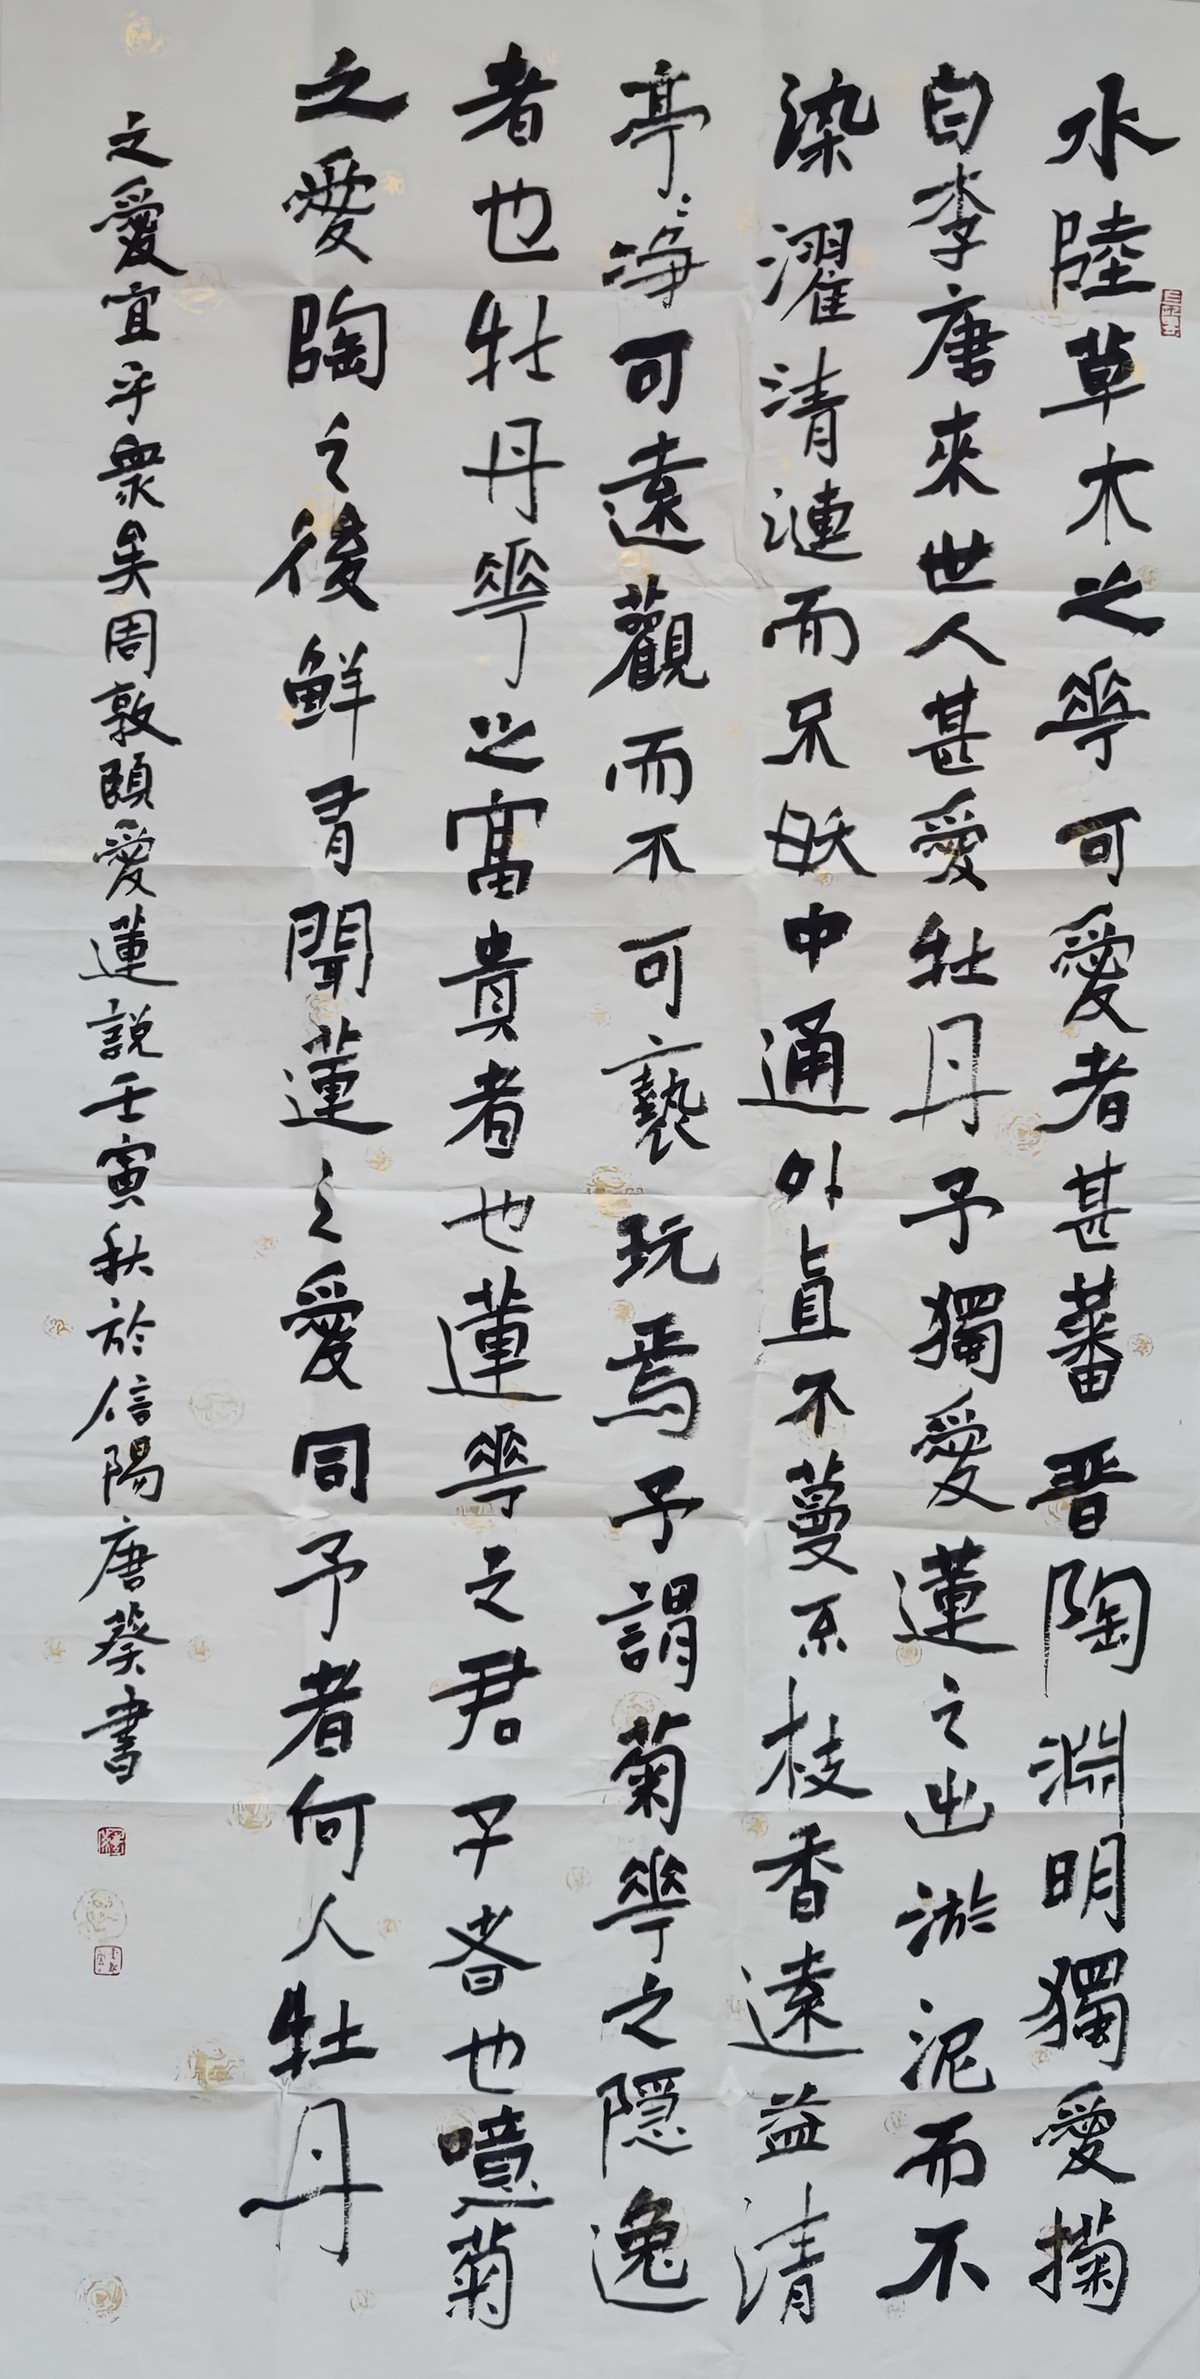 水陸草木之華可愛者甚蕃晋陶淵明獨愛掬
自李唐來世人甚愛牡丹予獨愛蓮之出淤泥而不
染濯清漣而不妖中通外直不蔓不枝香遠益清
亭:净可遠觀而不可褻玩焉予謂菊華之隠逸
者也牡丹華之富貴者也蓮華之君子者也噫菊
之愛陶之後鮮有聞蓮之愛同予者何人牡丹
之愛宜乎衆矣周敦頤愛蓮說壬寅秋於信陽唐葵書